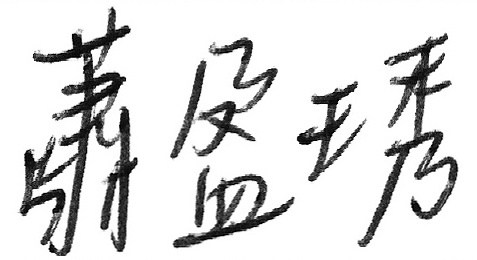 蕭盈琇